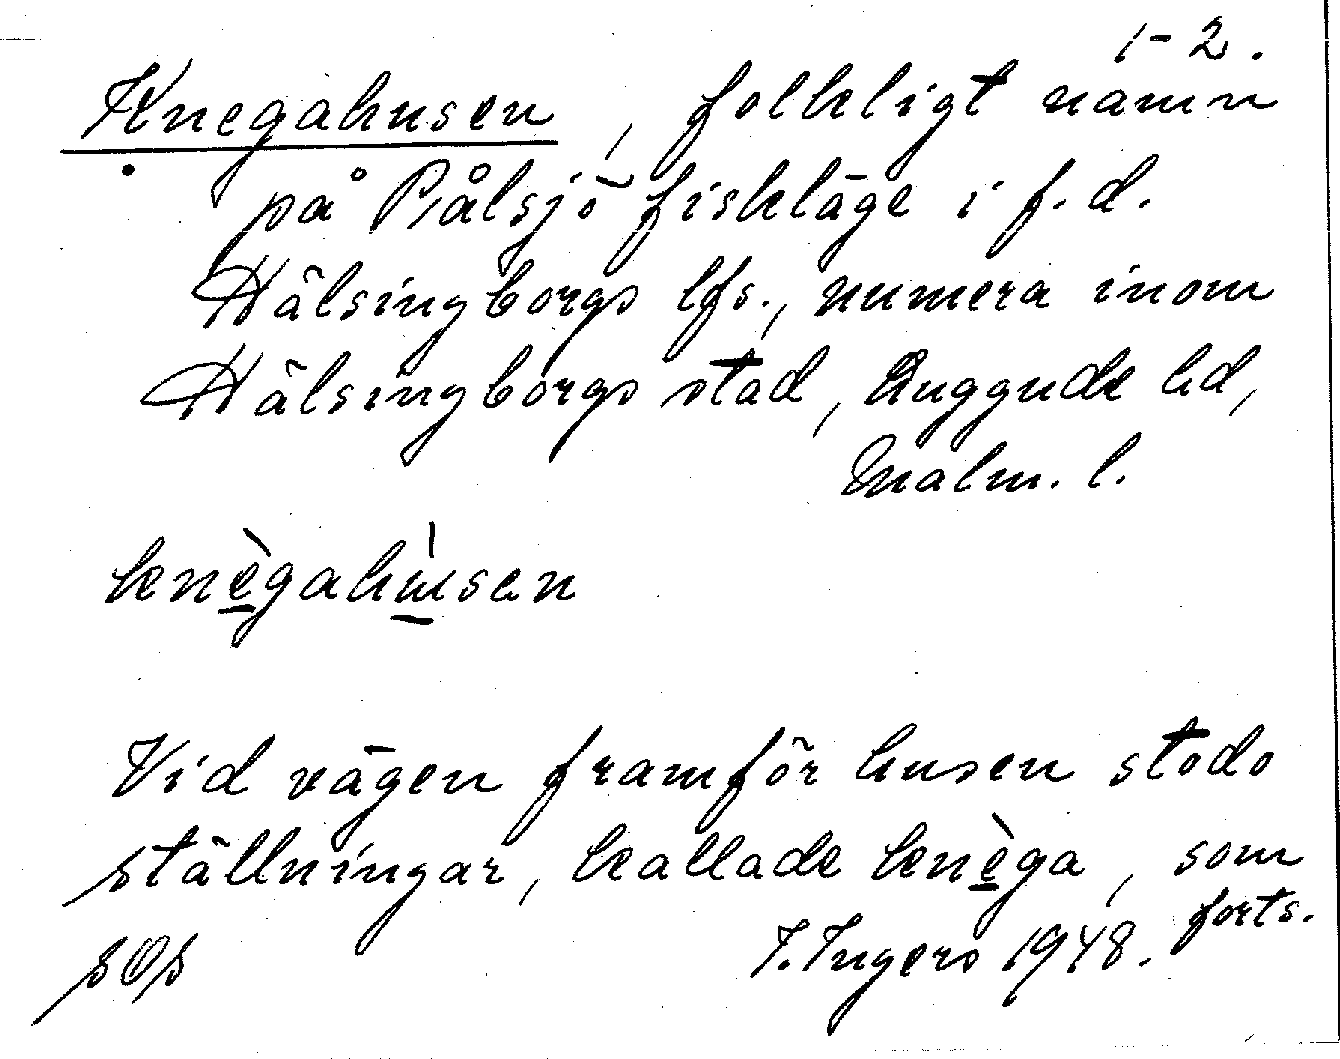 1-2.
Knegahusen, folkligt namn
på Pålsjö fiskläge i f.d.
Hälsingborgs lfs., numera inom
Hälsingborgs stad, Luggude hd,
Malm. l.
knègahùsen
Vid vägen framför husen stodo
ställningar, kallade knèga, som
forts.
sOs I. Ingers 1948.